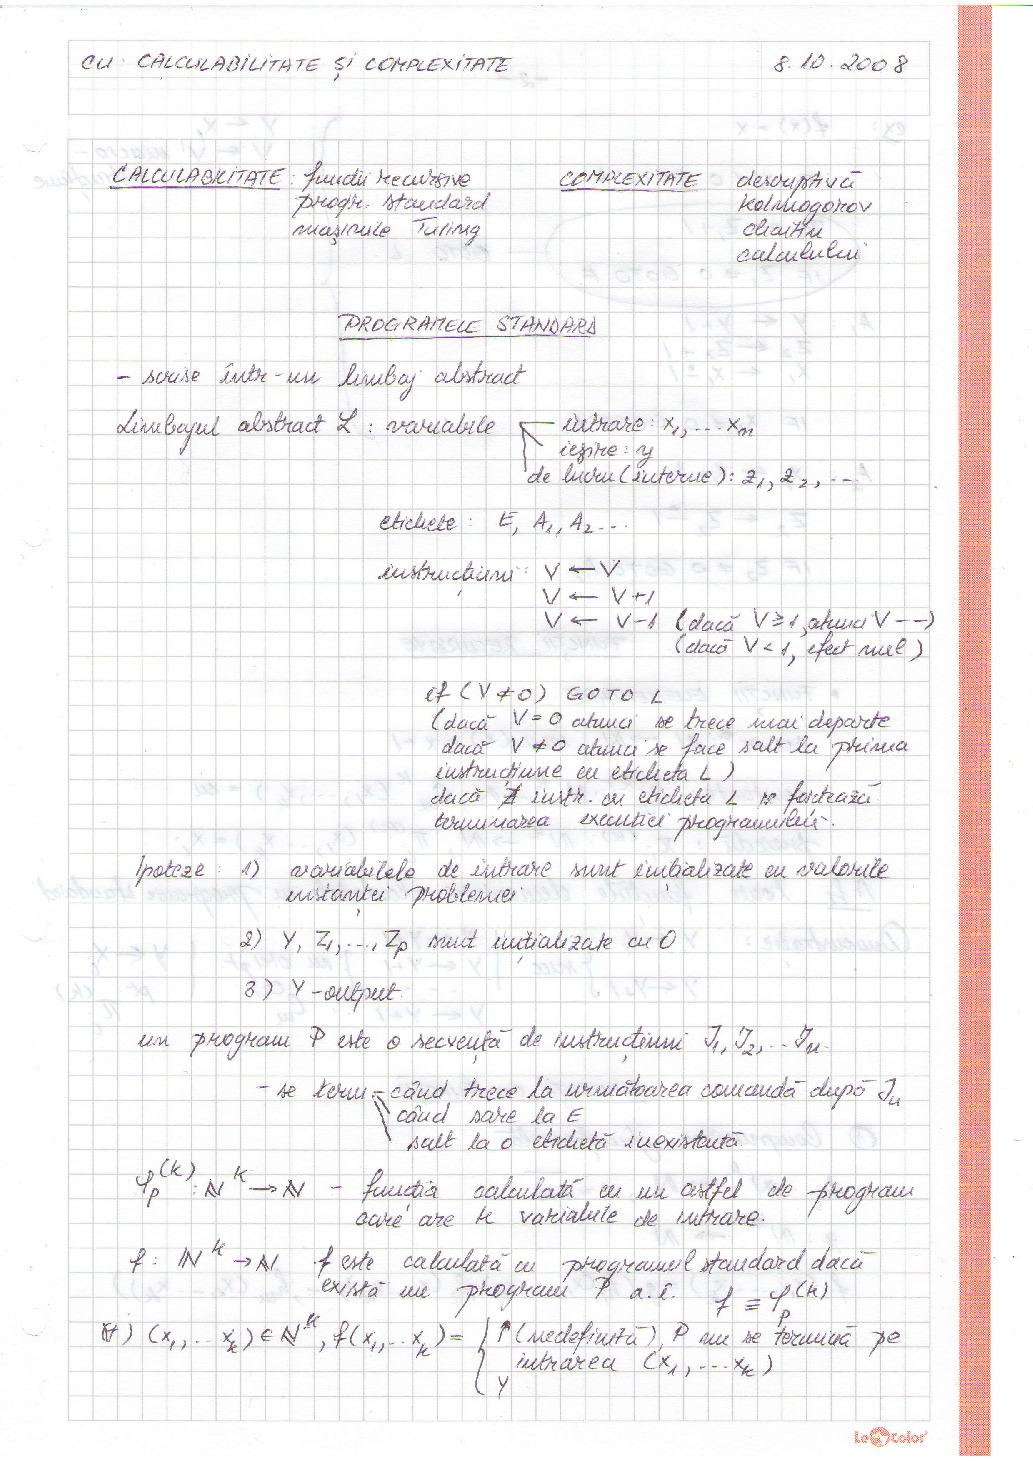 CU: CALCULABILITATE ȘI COMPLEXITATE 8.10.2008
CALCULABILITATE: funcții recursive COMPLEXITATE descriptivă
progr. standard Kolmogorov
mașinile Turing Chaitin
calculului
PROGRAMELE STANDARD
- scrise într-un limbaj abstract
Limbajul abstract L: variabile intrare: x1, ... xn
ieșire: y
de lucru (interne): z1, z2, ...
etichete: E, A1, A2 ...
instrucțiuni: V ← V
V ← V+1
V ← V-1 (dacă V≥1, atunci V--)
(dacă V<1, efect nul)
if (V≠0) GOTO L
(dacă V=0 atunci se trece mai departe
dacă V≠0 atunci se face salt la prima
instrucțiune cu eticheta L)
dacă ∄ instr. cu eticheta L se forțează
terminarea execuției programului.
Ipoteze: 1) variabilele de intrare sunt inițializate cu valorile
instanței problemei
2) Y, Z1, ..., Zp sunt inițializate cu 0
3) Y-output.
un program P este o secvență de instrucțiuni I1, I2, ... In.
- se term. când trece la următoarea comandă după In
când sare la E
salt la o etichetă inexistentă
φP^(k): ℕ^k → ℕ - funcția calculată cu un astfel de program
care are k variabile de intrare.
f: ℕ^k → ℕ f este calculată cu programul standard dacă
există un program P a.î. f ≡ φP^(k)
∀) (x1, ... xk) ∈ ℕ^k, f(x1, ... xk) = { ↑ (nedefinită), P nu se termină pe
intrarea (x1, ... xk)
Y
LeColor